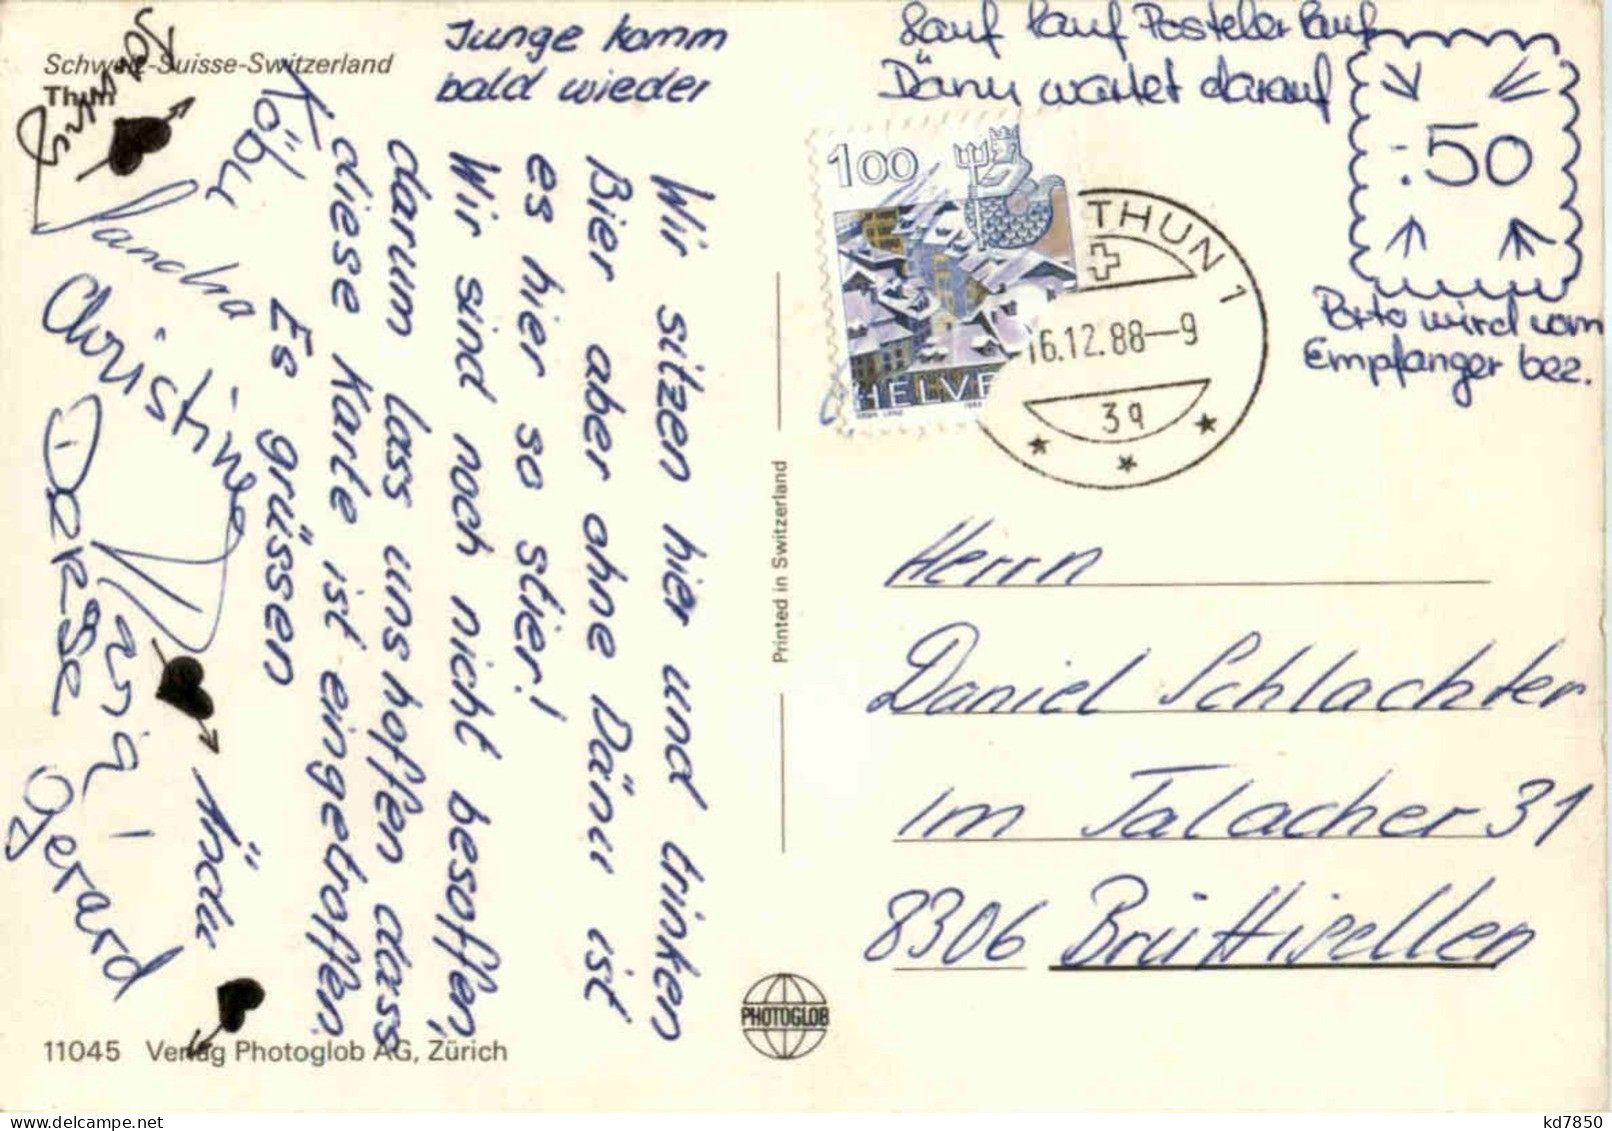 Schweiz-Suisse-Switzerland
Thun
Junge komm
bald wieder
Wir sitzen hier und trinken
Bier aber ohne Dänu ist
es hier so stier!
Wir sind noch nicht besoffen,
darum lass uns hoffen dass
diese Karte ist eingetroffen.
Es grüssen
Köbu
Sancha
Christine
Gerard
Ändu
11045 Verlag Photoglob AG, Zürich
Printed in Switzerland
PHOTOGLOB
Lauf lauf Posteler lauf
Dänu wartet darauf
:50
Porto wird vom
Empfänger bez.
100
HELVE
THUN 1
16.12.88-9
Herrn
Daniel Schlachter
im Talacher 31
8306 Brüttisellen
kd7850